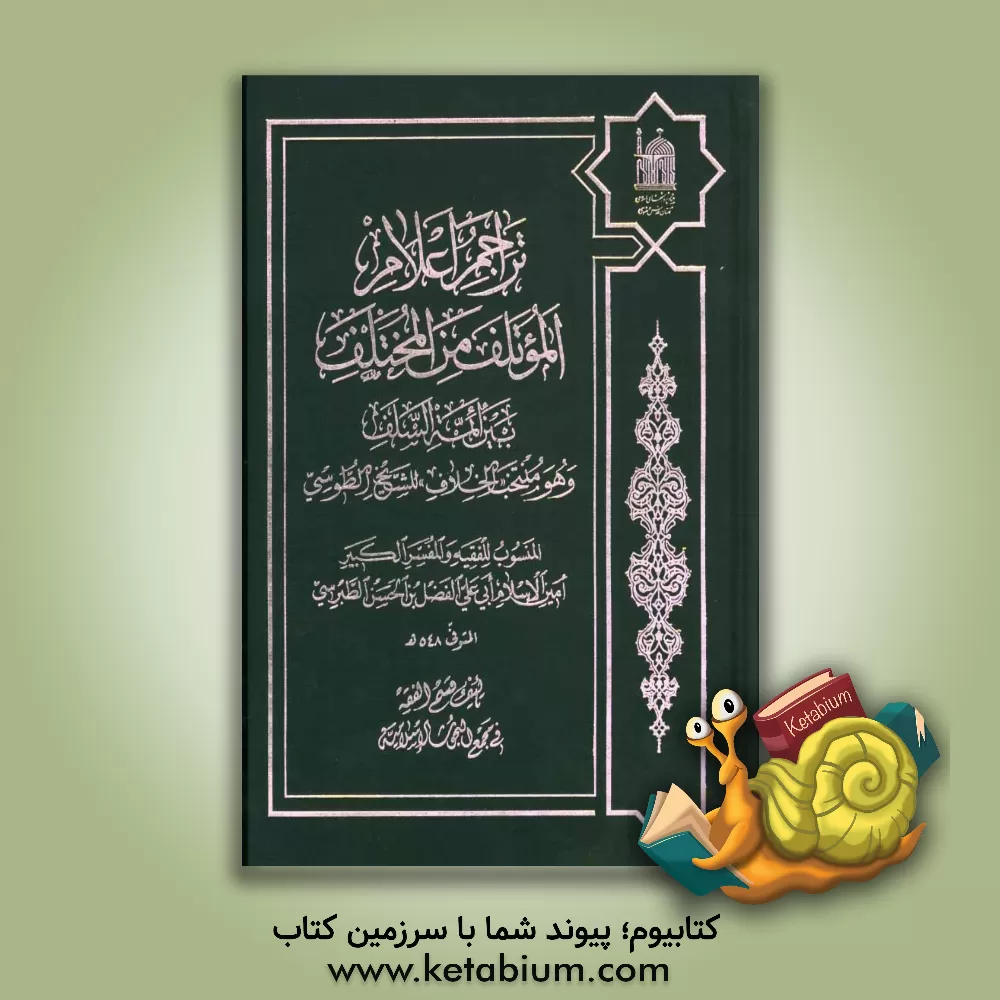 تَرَاجِمُ أَعْلَامِ
المُؤتَلَفِ مِنَ المُختَلِفِ
بَيْنَ أَئِمَّةِ السَّلَفِ
وَهُوَ مُنْتَخَبُ «الخِلَافِ» للشَّيْخِ الطُّوسِيِّ
المَنسُوبُ لِلفَقِيهِ وَالمُفَسِّرِ الكَبِيرِ
أَمِينِ الإِسْلَامِ أَبِي عَلِيٍّ الفَضْلِ بْنِ الحَسَنِ الطَّبْرِسِيِّ
المتوفّى ٥٤٨ هـ
تأليف قسم الفقه
في مجمع البحوث الإسلامية
Ketabium
کتابیوم؛ پیوند شما با سرزمین کتاب
www.ketabium.com